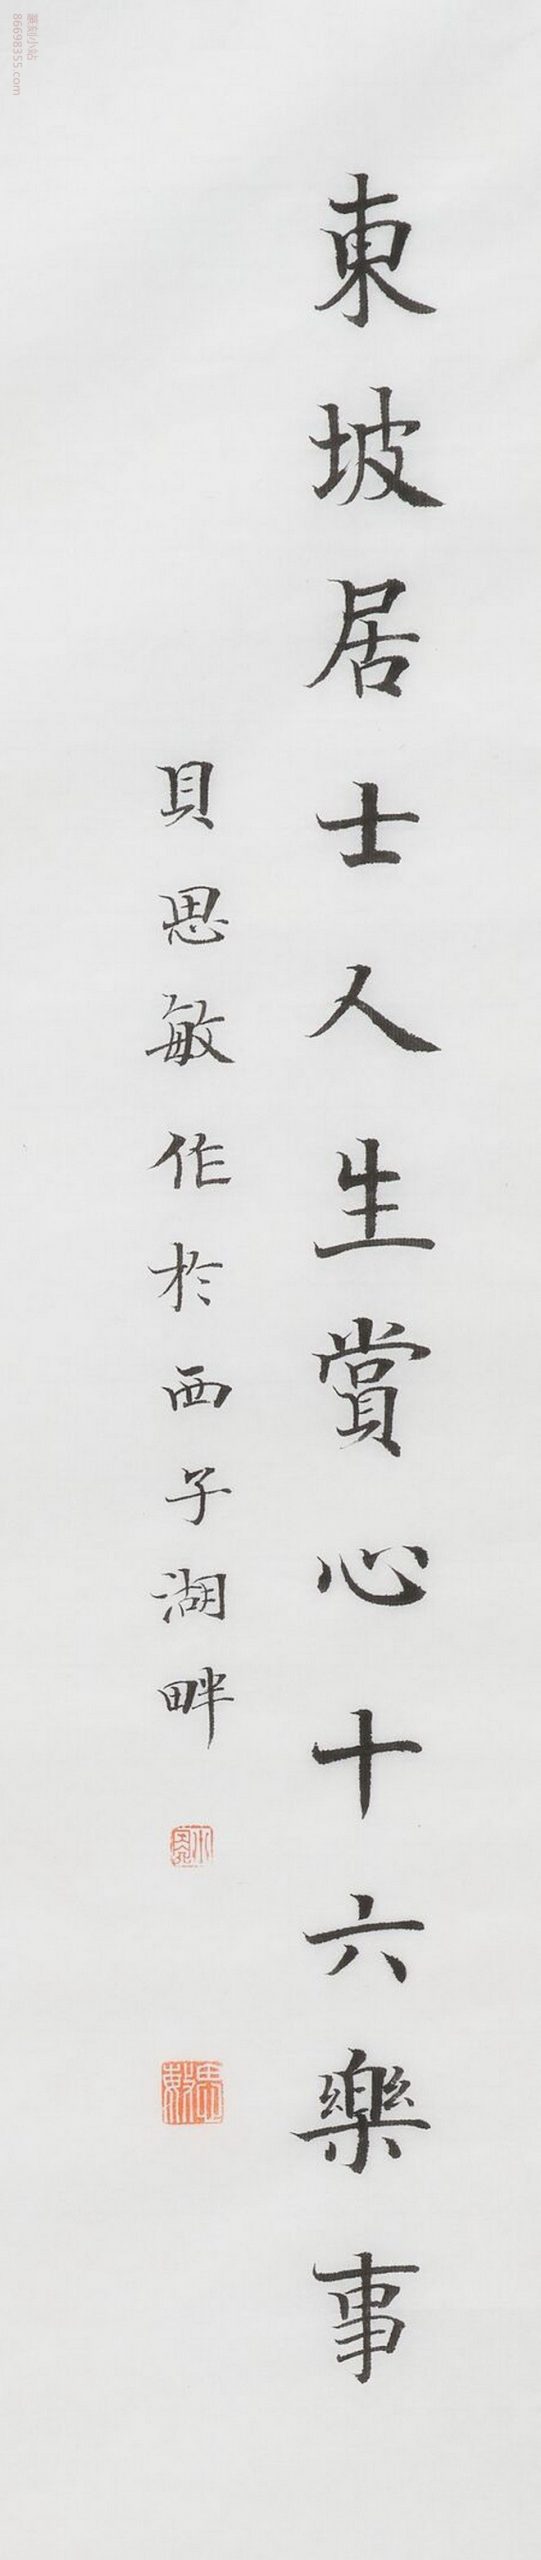 東坡居士人生賞心十六樂事
貝思敏作於西子湖畔
篆刻小站
86698355.com